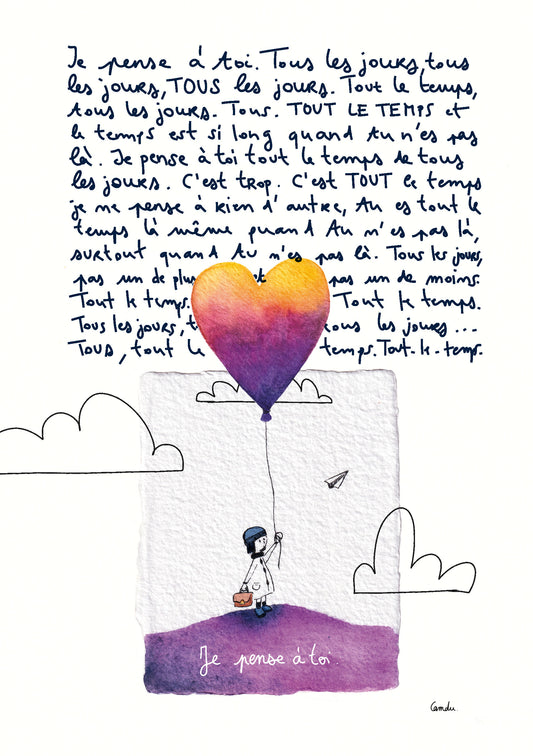 Je pense à toi. Tous les jours, tous
les jours, TOUS les jours. Tout le temps,
tous les jours. Tous. TOUT LE TEMPS et
le temps est si long quand tu n'es pas
là. Je pense à toi tout le temps de tous
les jours. C'est trop. C'est TOUT le temps
je ne pense à rien d'autre, tu es tout le
temps là même quand tu n'es pas là,
surtout quand tu n'es pas là. Tous les jours,
pas un de plus et pas un de moins.
Tout le temps. Tout le temps.
Tous les jours, t ous les jours...
Tous, tout le temps. Tout-le-temps.
Je pense à toi.
Camdu.